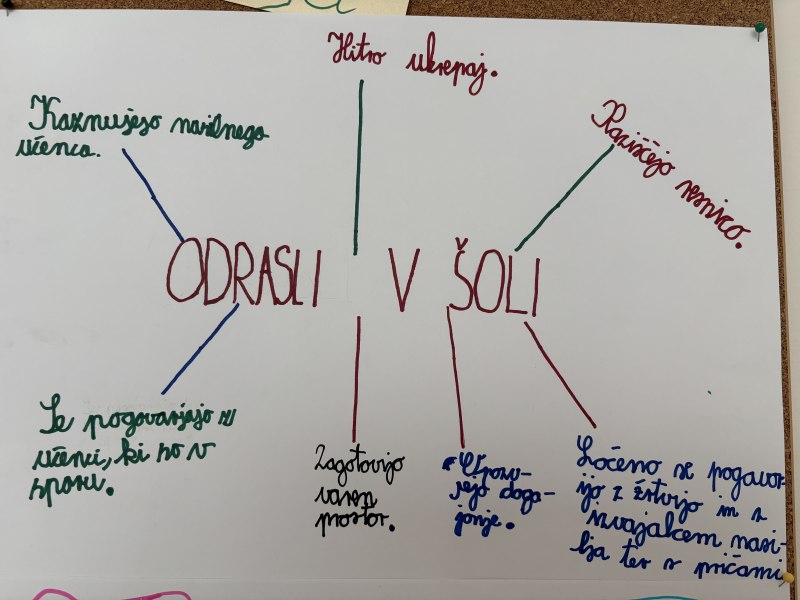 Hitro ukrepaj.
Kaznujejo nasilnega
učenca.
Raziščejo resnico.
ODRASLI V ŠOLI
Se pogovarjajo z
učenci, ki so v
sporu.
Zagotovijo
varen
prostor.
doga-
janje.
Ločeno se pogovor-
ijo z žrtvijo in z
izvajalcem nasi-
lja ter s pričami